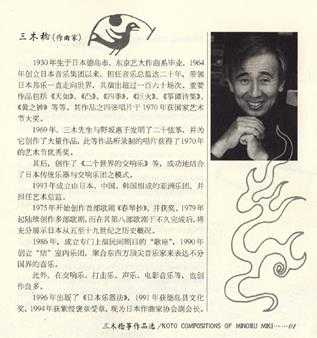 三木稔(作曲家)
1930年生于日本德岛市。东京艺大作曲系毕业。1964
年创立日本音乐集团以来，担任音乐总监达二十年，带领
日本邦乐一直走向世界，共演出超过一百六十场次。重要
作品包括《天如》、《凸》、《四季》、《巨火》、《筝谭诗集》、
《黄之钟》等等。其作品之四张唱片于1970年获国家艺术
节大奖。
1969年，三木先生与野坂惠子发明了二十弦筝，并为
它创作了大量作品。此等作品所录制的唱片获得了1970年
的艺术节优秀奖。
其后，创作了《二个世界的交响乐》等，成功地结合
了日本传统乐器与交响乐团之模式。
1993年成立由日本、中国、韩国组成的亚洲乐团，并
担任艺术总监。
1975年开始创作首部歌剧《春琴抄》，并获奖。1979年
起陆续创作多部歌剧，而在其第八部歌剧于不久完成后，将
充分展示日本从五至十九世纪之历史概况。
1986年，成立专门上演民间剧目的“歌座”，1990年
创立“结”室内乐团，聚合东西方顶尖音乐家来表达不分
国界的音乐。
此外，在交响乐、打击乐、声乐、电影音乐等，也创
作良多。
1996年出版了《日本乐器法》，1991年获德岛县文化
奖，1994年获紫绶褒章受章。现为日本作曲家协会副会长。
三木稔筝作品选/KOTO COMPOSITIONS OF MINORU MIKI……01